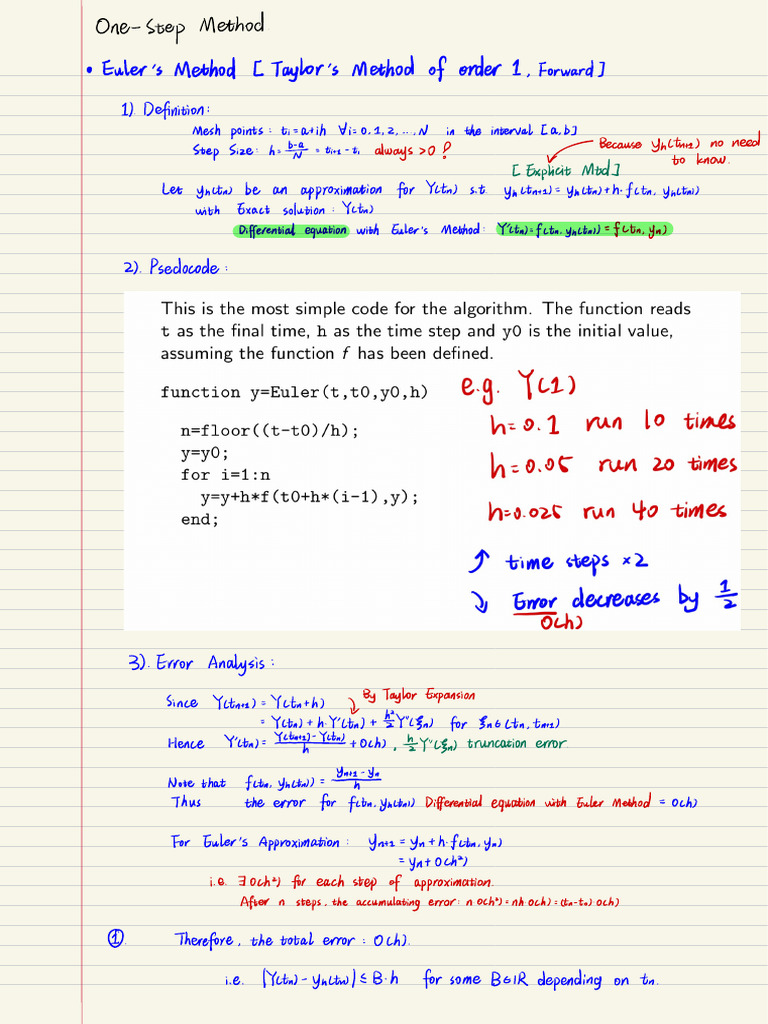 One-Step Method
• Euler's Method [ Taylor's Method of order 1, Forward ]
1). Definition:
Mesh points : ti = a+ih ∀i = 0, 1, 2, ..., N in the interval [a, b]
Step Size : h = (b-a)/N = ti+1 - ti always >0 !
Because yh(tn+1) no need to know.
[ Explicit Mtd ]
Let yh(tn) be an approximation for Y(tn) s.t. yh(tn+1) = yh(tn) + h·f(tn, yh(tn))
with Exact solution : Y(tn)
Differential equation with Euler's Method: Y'(tn) = f(tn, yh(tn)) = f(tn, yn)
2). Psedocode :
This is the most simple code for the algorithm. The function reads
t as the final time, h as the time step and y0 is the initial value,
assuming the function f has been defined.
function y=Euler(t,t0,y0,h)
n=floor((t-t0)/h);
y=y0;
for i=1:n
y=y+h*f(t0+h*(i-1),y);
end;
e.g. Y(1)
h=0.1 run 10 times
h=0.05 run 20 times
h=0.025 run 40 times
↗ time steps ×2
↘ Error decreases by 1/2
O(h)
3). Error Analysis :
Since Y(tn+1) = Y(tn+h) By Taylor Expansion
= Y(tn) + h·Y'(tn) + h²/2 Y''(ξn) for ξn ∈ (tn, tn+1)
Hence Y'(tn) = (Y(tn+1) - Y(tn))/h + O(h) , h/2 Y''(ξn) truncation error
Note that f(tn, yh(tn)) = (yn+1 - yn)/h
Thus the error for f(tn, yh(tn)) Differential equation with Euler Method = O(h)
For Euler's Approximation : yn+1 = yn + h·f(tn, yn)
= yn + O(h²)
i.e. ∃ O(h²) for each step of approximation.
After n steps, the accumulating error : n O(h²) = nh·O(h) = (tn-t0) O(h)
① Therefore, the total error : O(h).
i.e. |Y(tn) - yh(tn)| ≤ B·h for some B∈ℝ depending on tn.